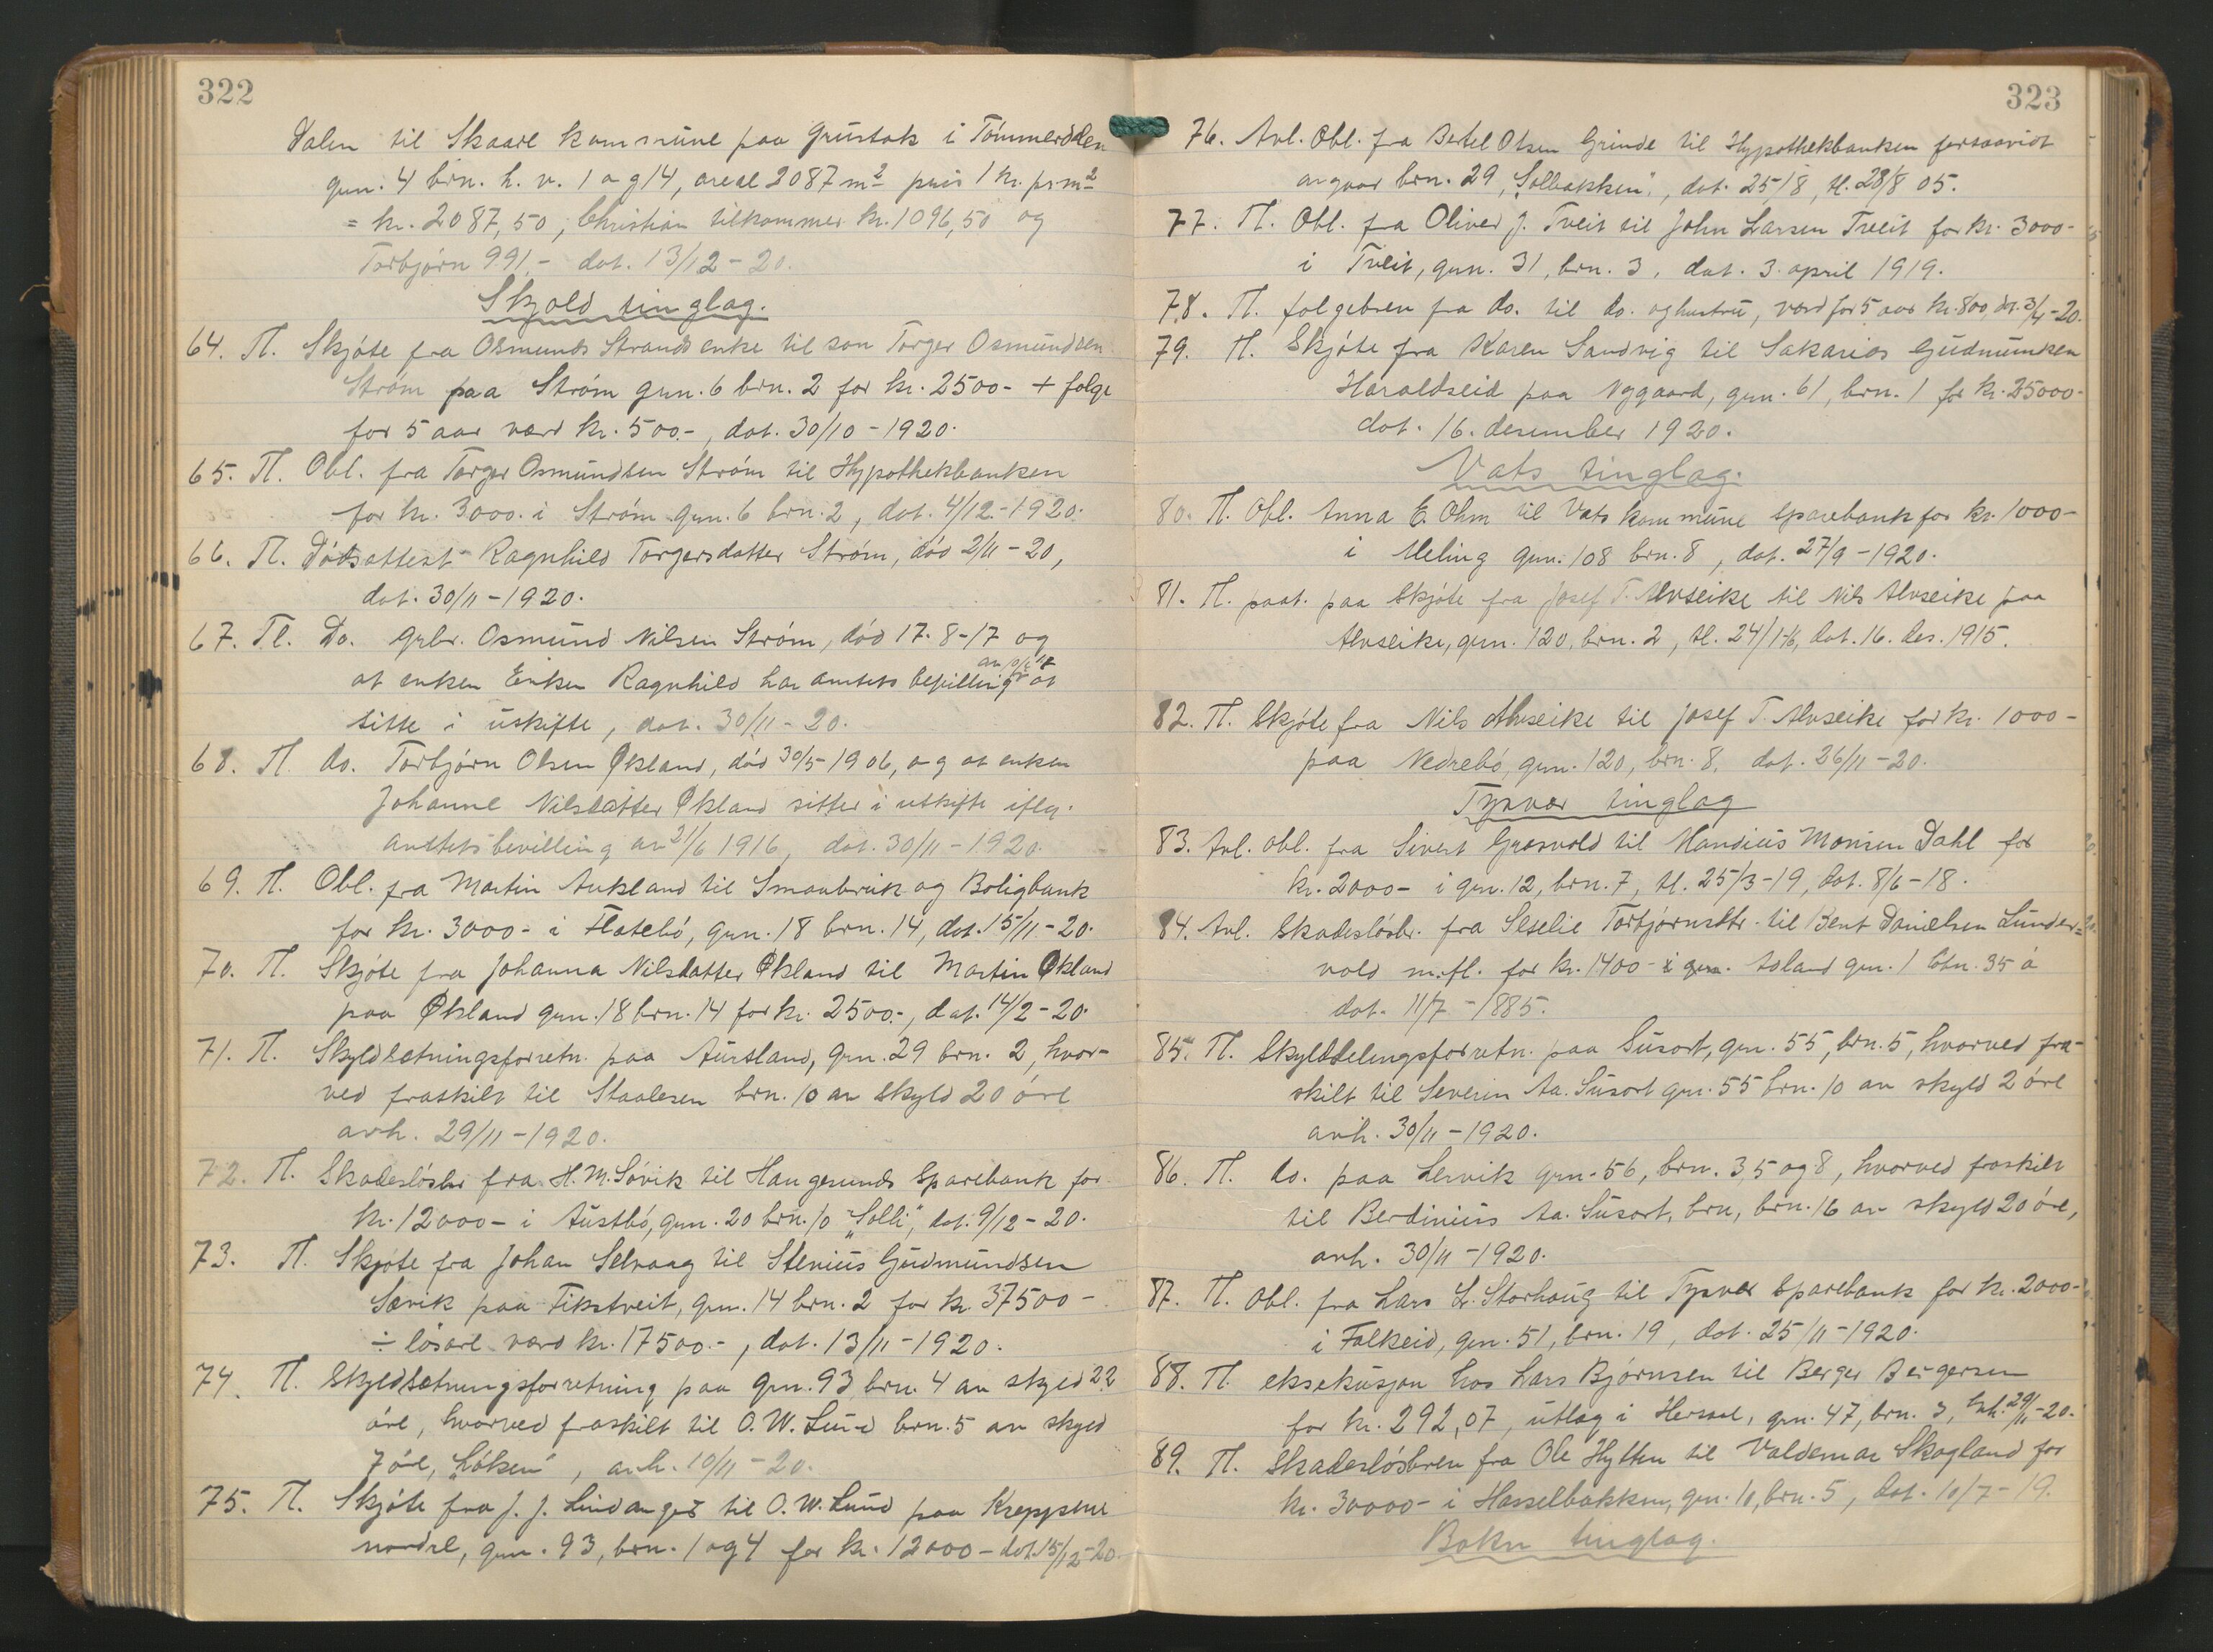 322
Dalen til Skaare kommune paa Grustak i Tömmerdalen
gun. 4 brn. h. v. 1 og 14, areal 2087 m² pris 1 kr. pr m²
= kr. 2087,50, Christian tilkommer kr. 1096,50 og
Torbjörn 991.- dat. 13/12-20.
Skjold tinglag.
64. Tl. Skjöte fra Osmunds Strands enke til son Torger Osmundsen
Ström paa Ström gun. 6 brn. 2 for kr. 2500- + folge
for 5 aar værd kr. 500.-, dat. 30/10-1920.
65. Tl. Obl. fra Torger Osmundsen Ström til Hypothekbanken
for kr. 3000. i Ström gun. 6 brn. 2, dat. 4/12.-1920.
66. Tl. Dödsattest Ragnhild Torgersdatter Ström, död 2/11-20,
dat. 30/11-1920.
67. Tl. Do. grbr. Osmund Nilsen Ström, död 17-8-17 og
at enken Enken Ragnhild har amtets bevilling at
sitte i uskifte, dat. 30/11-20.
68. Tl. do. Torbjörn Olsen Økland, död 30/5-1906, og at enken
Johanne Nilsdatter Økland sitter i utskifte iflg.
amtets bevilling av 21/6 1916, dat. 30/11-1920.
69. Tl. Obl. fra Martin Aukland til Smaabruk og Boligbank
for kr. 3000- i Flatebö, gun. 18 brn. 14, dat. 15/11-20.
70. Tl. Skjöte fra Johanna Nilsdatter Økland til Martin Økland
paa Økland gun. 18 brn. 14 for kr. 2500.-, dat. 14/2-20.
71. Tl. Skyldsætningsforretn. paa Aursland, grn. 29 brn. 2, hvor-
ved fraskilt til Staalesen brn. 10 av skyld 20 öre
avh. 29/11-1920.
72. Tl. Skadeslösbr fra H. M. Sövik til Haugesunds Sparebank for
kr. 12000- i Austbö, gun. 20 brn. 10 "Solli", dat. 9/12-20.
73. Tl. Skjöte fra Johan Selvaag til Stenius Gudmundsen
Sævik paa Fikstveit, grn. 14 brn. 2 for kr. 37500-
÷ lösöre værd kr. 17500.-, dat. 13/11-1920.
74. Tl. Skyldsætningsforretning paa grn. 93 brn. 4 av skyld 22
öre, hvorved fraskilt til O. W. Lund brn. 5 av skyld
7 öre, "Löken", avh. 10/11-20.
75. Tl. Skjöte fra J. J. Lindanger til O. W. Lund paa Kreppene
nordre, gun. 93, brn. 1 og 4 for kr. 12000- dat. 15/12-20.
323
76. Avl. Obl. fra Bertel Olsen Grinde til Hypothekbanken forsaavidt
angaar brn. 29, "Solbakken", dat. 25/8, tl. 28/8 05.
77. Tl. Obl. fra Oliver J. Tveit til John Larsen Tveit for kr. 3000-
i Tveit, gun. 31, brn. 3, dat. 3. april 1919.
78. Tl. folgebrev fra do. til do. og hustru, værd for 5 aar kr. 800, dt. 3/4-20.
79. Tl. Skjöte fra Karen Sandvig til Sakarias Gudmundsen
Haraldseid paa Nygaard, gun. 61, brn. 1 for kr. 25000-
dat. 16. desember 1920.
Vats tinglag.
80. Tl. Obl. Anna E. Ohm til Vats kommune sparebank for kr. 1000-
i Meling gun. 108 brn. 8, dat. 27/9-1920.
81. Tl. paat. paa Skjöte fra Josef T. Alvseike til Nils Alvseike paa
Alvseike, gun. 120, brn. 2, tl. 24/1-16, dat. 16. des. 1915.
82. Tl. Skjöte fra Nils Alvseike til Josef T. Alvseike for kr. 1000-
paa Nedrebö, gun. 120, brn. 8. dat. 26/11-20.
Tysvær tinglag
83. Avl. obl. fra Sivert Grasvold til Handius Monsen Dahl for
kr. 2000- i grn. 12, brn. 7, tl. 25/3-19, dat. 8/6-18.
84. Avl. Skadeslösbr. fra Seselie Torbjörnsdtr. til Bent Danielsen Lunder=
vold m.fl. for kr. 1400- i Adland grn. 1 35 a
dat. 11/7-1885.
85. Tl. Skylddelingsforretn. paa Susort, grn. 55, brn. 5, hvorved fra-
skilt til Severin Aa. Susort grn. 55 brn. 10 av skyld 2 öre
avh. 30/11-1920.
86. Tl. do. paa Lervik grn. 56, brn. 3, 5 og 8, hvorved fraskilt
til Berdinius Aa. Susort, brn, brn. 16 av skyld 20 öre,
avh. 30/11-1920.
87. Tl. Obl. fra Lars L. Storhaug til Tysvær Sparebank for kr. 2000-
i Falkeid, grn. 51, brn. 19, dat. 25/11-1920.
88. Tl. eksekusjon hos Lars Bjørnsen til Berger Bergersen
for kr. 292,07, utlæg i grn. 47, brn. 3, 29/11-20.
89. Tl. Skadeslösbrev fra Ole Hytten til Valdemar Skogland for
kr. 30000- i Hasselbakken, grn. 10, brn. 5, dat. 10/7-19.
Bokn tinglag.